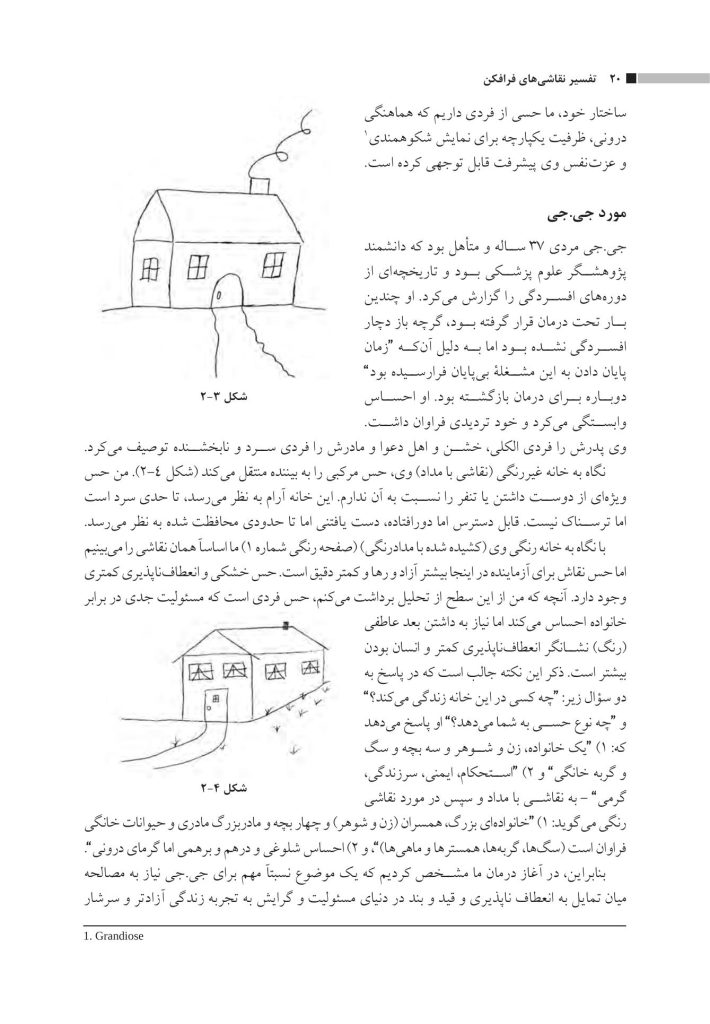 ۲۰ تفسیر نقاشی‌های فرافکن
ساختار خود، ما حسی از فردی داریم که هماهنگی
درونی، ظرفیت یکپارچه برای نمایش شکوهمندی۱
و عزت‌نفس وی پیشرفت قابل توجهی کرده است.
مورد جی.جی
جی.جی مردی ۳۷ ساله و متأهل بود که دانشمند
پژوهشگر علوم پزشکی بود و تاریخچه‌ای از
دوره‌های افسردگی را گزارش می‌کرد. او چندین
بار تحت درمان قرار گرفته بود، گرچه باز دچار
افسردگی نشده بود اما به دلیل آن‌که "زمان
پایان دادن به این مشغلهٔ بی‌پایان فرارسیده بود"
دوباره برای درمان بازگشته بود. او احساس
وابستگی می‌کرد و خود تردیدی فراوان داشت.
شکل ۳-۲
وی پدرش را فردی الکلی، خشن و اهل دعوا و مادرش را فردی سرد و نابخشنده توصیف می‌کرد.
نگاه به خانه غیررنگی (نقاشی با مداد) وی، حس مرکبی را به بیننده منتقل می‌کند (شکل ٤-۲). من حس
ویژه‌ای از دوست داشتن یا تنفر را نسبت به آن ندارم. این خانه آرام به نظر می‌رسد، تا حدی سرد است
اما ترسناک نیست. قابل دسترس اما دورافتاده، دست یافتنی اما تا حدودی محافظت شده به نظر می‌رسد.
با نگاه به خانه رنگی وی (کشیده شده با مدادرنگی) (صفحه رنگی شماره ۱) ما اساساً همان نقاشی را می‌بینیم
اما حس نقاش برای آزماینده در اینجا بیشتر آزاد و رها و کمتر دقیق است. حس خشکی و انعطاف‌ناپذیری کمتری
وجود دارد. آنچه که من از این سطح از تحلیل برداشت می‌کنم، حس فردی است که مسئولیت جدی در برابر
خانواده احساس می‌کند اما نیاز به داشتن بعد عاطفی
(رنگ) نشانگر انعطاف‌ناپذیری کمتر و انسان بودن
بیشتر است. ذکر این نکته جالب است که در پاسخ به
دو سؤال زیر: "چه کسی در این خانه زندگی می‌کند؟"
و "چه نوع حسی به شما می‌دهد؟" او پاسخ می‌دهد
که: ۱) "یک خانواده، زن و شوهر و سه بچه و سگ
و گربه خانگی" و ۲) "استحکام، ایمنی، سرزندگی،
گرمی" – به نقاشی با مداد و سپس در مورد نقاشی
شکل ۴-۲
رنگی می‌گوید: ۱) "خانواده‌ای بزرگ، همسران (زن و شوهر) و چهار بچه و مادربزرگ مادری و حیوانات خانگی
فراوان است (سگ‌ها، گربه‌ها، همسترها و ماهی‌ها)"، و ۲) احساس شلوغی و درهم و برهمی اما گرمای درونی".
بنابراین، در آغاز درمان ما مشخص کردیم که یک موضوع نسبتاً مهم برای جی.جی نیاز به مصالحه
میان تمایل به انعطاف ناپذیری و قید و بند در دنیای مسئولیت و گرایش به تجربه زندگی آزادتر و سرشار
1. Grandiose